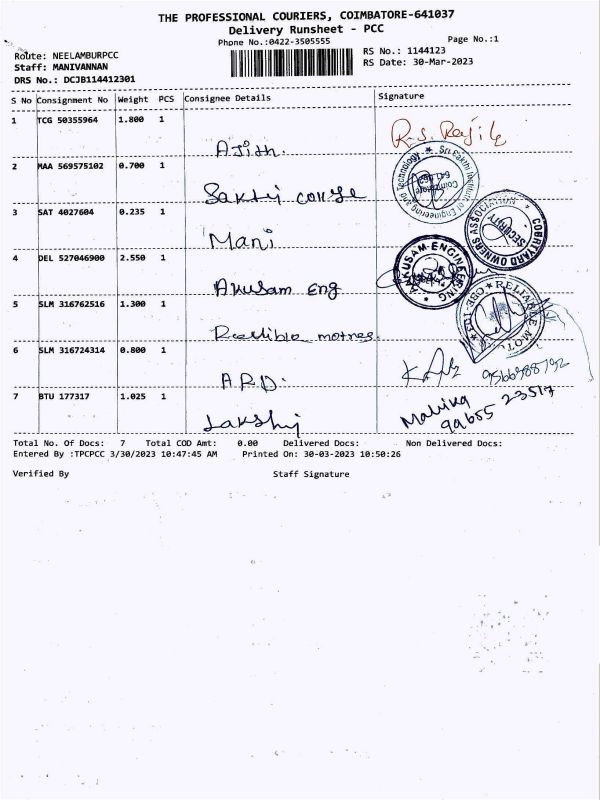 THE PROFESSIONAL COURIERS, COIMBATORE-641037
Delivery Runsheet - PCC
Phone No.:0422-3505555
Page No.:1
Route: NEELAMBURPCC
Staff: MANIVANNAN
DRS No.: DCJB114412301
RS No.: 1144123
RS Date: 30-Mar-2023
S No Consignment No Weight PCS Consignee Details Signature
1 TCG 50355964 1.800 1
Ajith.
2 MAA 569575102 0.700 1
Sakthi
Sri Sakthi Institute of Engineering and Technology
Coimbatore
3 SAT 4027604 0.235 1
Mani
COURTYARD OWNERS ASSOCIATION
SECURITY
4 DEL 527046900 2.550 1
Akusam Eng
AKUSAM-ENGINEERING
5 SLM 316762516 1.300 1
RELIABLE MOT
CBE-102
6 SLM 316724314 0.800 1
A.P.D.
7 BTU 177317 1.025 1
99655 23517
Total No. Of Docs: 7 Total COD Amt: 0.00 Delivered Docs: Non Delivered Docs:
Entered By :TPCPCC 3/30/2023 10:47:45 AM Printed On: 30-03-2023 10:50:26
Verified By Staff Signature